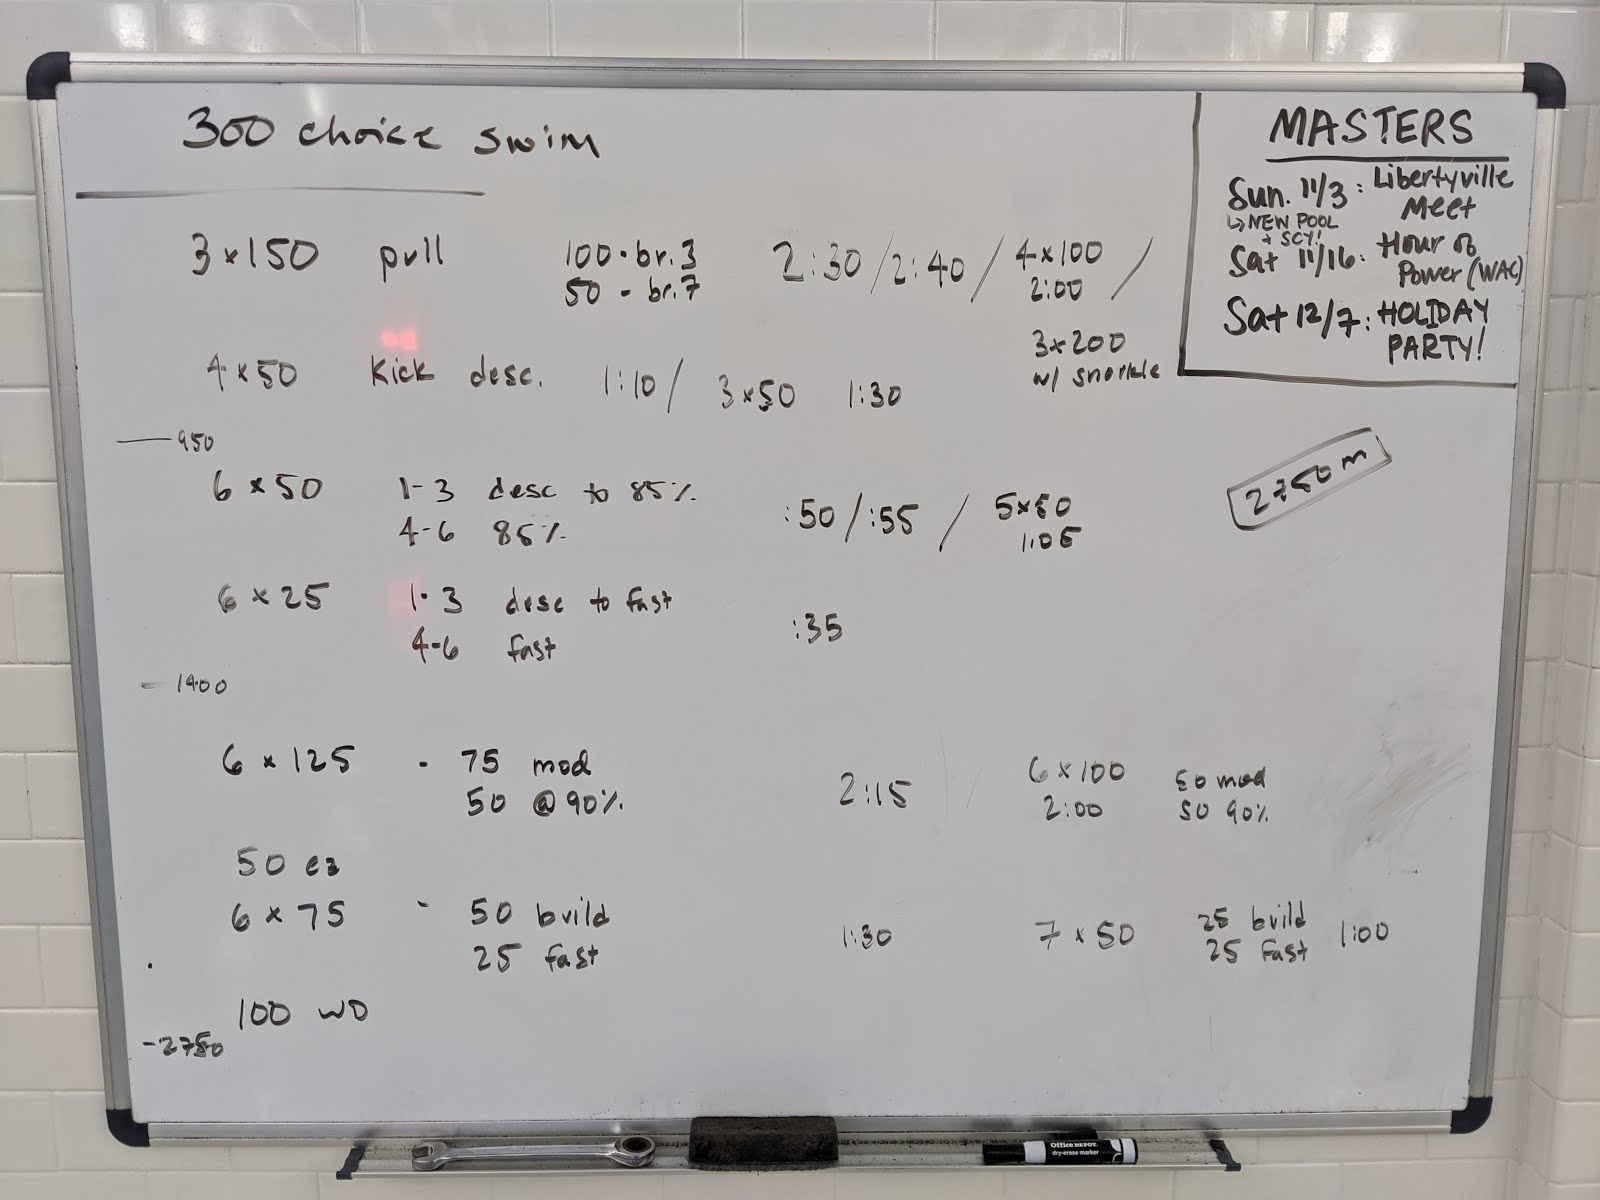 300 choice swim
3 x 150 pull 100 - br. 3 2:30 / 2:40 / 4 x 100 /
50 - br. 7 2:00
3x200
w/ snorkle
4 x 50 Kick desc. 1:10 / 3 x 50 1:30
950
6 x 50 1-3 desc to 85% :50 / :55 / 5x50
4-6 85% 1:05
6 x 25 1-3 desc to fast :35
4-6 fast
1400
6 x 125 - 75 mod 2:15 6 x 100 50 mod
50 @ 90% 2:00 50 90%
50 ez
6 x 75 - 50 build 1:30 7 x 50 25 build 1:00
25 fast 25 fast
100 WD
-2750
MASTERS
Sun. 11/3: Libertyville
Meet
↳ NEW POOL
+ SCY!
Sat 11/16: Hour of
Power (WAC)
Sat 12/7: HOLIDAY
PARTY!
2750 m
Office DEPOT
dry-erase marker